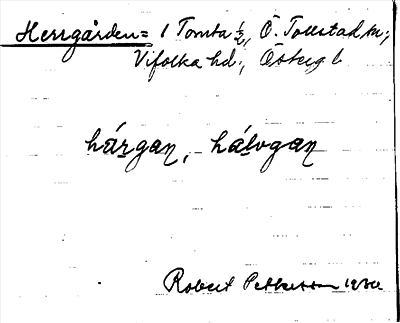 Herrgården = 1 Tomta ½, Ö. Tollstad sn;
Vifolka hd., Östergl
hárgan, hálvgan
Robert Pettersson 1930